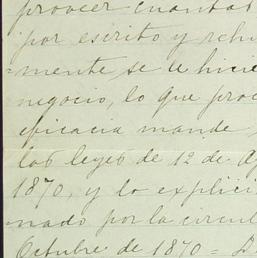 proveer cuantas
por escrito y rehu
mente se le hicie
negocio, lo que pro
eficacia mande
las leyes de 12 de Ag
1870, y lo explici
nado por la circul
Octubre de 1870 =